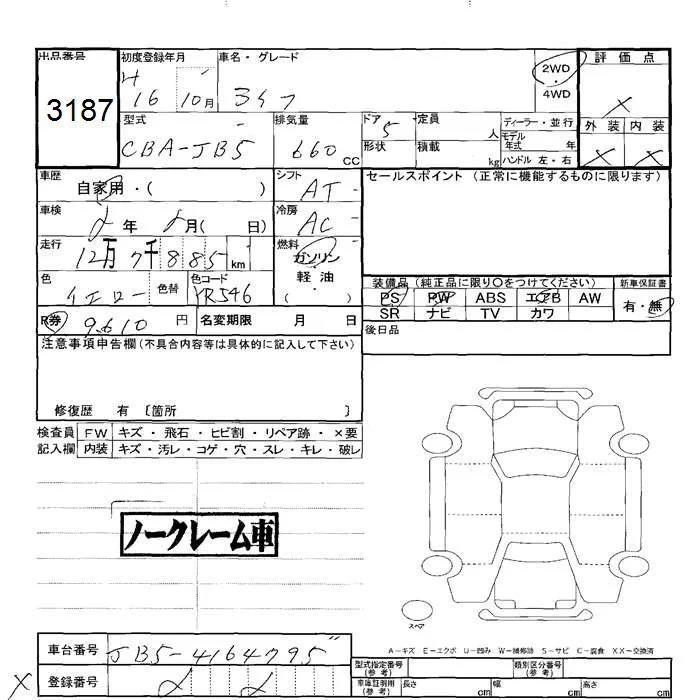 出品番号 初度登録年月 車名・グレード 2WD・4WD 評価点
3187 H16 10月 ライフ ×
型式 排気量 ドア 定員 ディーラー・並行 外装 内装
CBA-JB5 660CC 5 人 モデル年式 年 × ×
形状 積載 kg ハンドル 左・右
車歴 自家用・( ) シフト AT セールスポイント (正常に機能するものに限ります)
車検 年 月( 日) 冷房 AC
走行 12万7千885km 燃料 ガソリン
軽・油
( ・ )
色 イエロー 色替 色コード YR546
装備品 (純正品に限り○をつけてください) 新車保証書
PS PW ABS エアB AW 有・無
SR ナビ TV カワ
R券 9610円 名変期限 月 日 後日品
注意事項申告欄(不具合内容等は具体的に記入して下さい)
修復歴 有 〔箇所 〕
検査員 FW キズ・飛石・ヒビ割・リペア跡・×要
記入欄 内装 キズ・汚レ・コゲ・穴・スレ・キレ・破レ
ノークレーム車
スペア
車台番号 JB5-4164795
A-キズ E-エクボ U-凹み W-補修跡 S-サビ C-腐食 XX-交換済
× 登録番号
型式指定番号(参考) 類別区分番号(参考)
車庫証明用(参考) 長さ cm 幅 cm 高さ cm